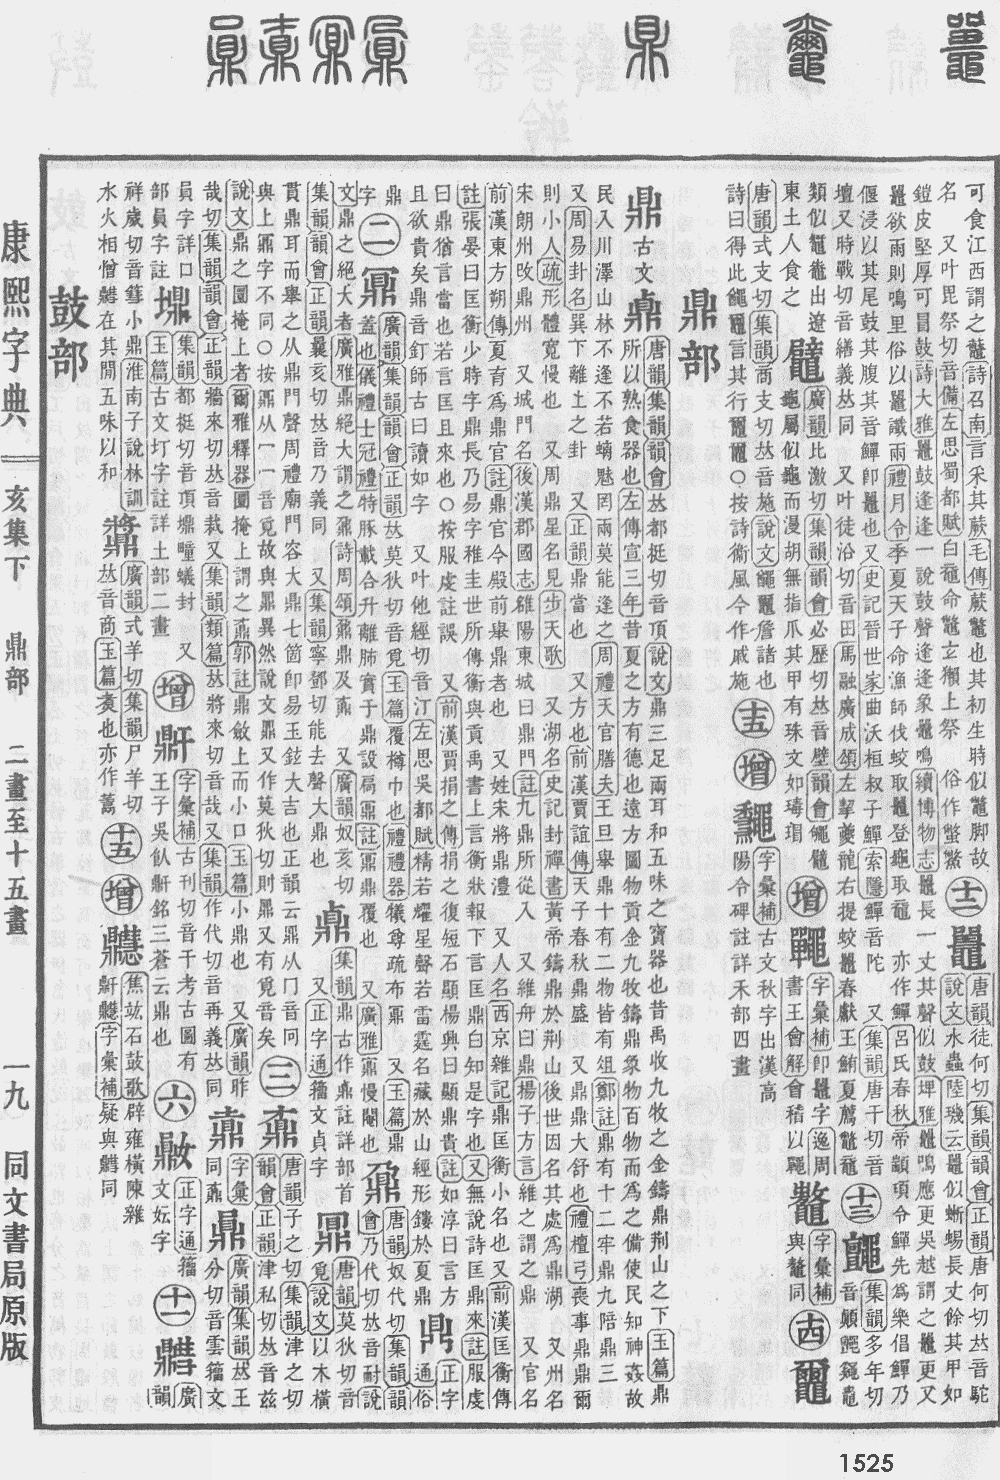 鼎
可食江西謂之虌詩召南言采其蕨毛傳蕨虌也其初生時似鼈脚故
名 又叶毘祭切音𠐊左思蜀都賦白黿命鼈玄獺上祭 俗作蟞
十二 鼉 唐韻徒何切集韻韻會正韻唐何切𠀤音駝
說文水蟲陸璣云鼉似蜥蜴長丈餘其甲如
鎧皮堅厚可冒鼓詩大雅鼉鼓逢逢一說鼓聲逢逢象鼉鳴續博物志鼉長一丈其聲似鼓埤雅鼉鳴應更吳越謂之鼉更又
鼉欲雨則鳴里俗以鼉讖雨禮月令季夏天子命漁師伐蛟取鼉登龜取黿 亦作鱓呂氏春秋帝顓頊令鱓先爲樂倡鱓乃
偃浸以其尾鼓其腹其音鱓卽鼉也又史記晉世家曲沃桓叔子鱓索隱鱓音陀 又集韻唐干切音
壇又時戰切音繕義𠀤同 又叶徒沿切音田馬融廣成頌左挈夔龍右提蛟鼉春獻王鮪夏薦鼈黿
十三 集韻多年切
音顛
類似鼊出遼
東土人食之
鼊 廣韻比激切集韻韻會必歷切𠀤音壁韻會
龜屬似龜而漫胡無指爪其甲有珠文如瑇瑁
增 字彙補卽鼉字逸周
書王會解會稽以
鼈 字彙補
與鼈同
十四
唐韻式支切集韻商支切𠀤音施說文詹諸也
詩曰得此言其行○按詩衞風今作戚施
十五 增 字彙補古文秋字出漢高
陽令碑註詳禾部四畫
鼎部
鼎 古文 唐韻集韻韻會𠀤都挺切音頂說文鼎三足兩耳和五味之寶器也昔禹收九牧之金鑄鼎荆山之下玉篇鼎
所以熟食器也左傳宣三年昔夏之方有德也遠方圖物貢金九牧鑄鼎象物百物而爲之備使民知神姦故
民入川澤山林不逢不若螭魅罔兩莫能逢之周禮天官膳夫王日舉鼎十有二物皆有俎鄭註鼎有十二牢鼎九陪鼎三
又周易卦名巽下離上之卦 又正韻鼎當也 又方也前漢賈誼傳天子春秋鼎盛 又鼎鼎大舒也禮檀弓喪事鼎鼎爾
則小人疏形體寬慢也 又周鼎星名見步天歌 又湖名史記封禪書黃帝鑄鼎於荆山後世因名其處爲鼎湖 又州名
宋朗州攺鼎州 又城門名後漢郡國志雒陽東城曰鼎門註九鼎所從入 又維舟曰鼎揚子方言維之謂之鼎 又官名
前漢東方朔傳夏育爲鼎官註鼎官今殿前舉鼎者也 又姓宋將鼎澧 又人名西京雜記鼎匡衡小名也又前漢匡衡傳
註張晏曰匡衡少時字鼎長乃易字稚圭世所傳衡與貢禹書上言衡狀報下言匡鼎白知是字也又無說詩匡鼎來註服虔
曰鼎猶言當也若言匡且來也○按服虔註誤 又前漢賈捐之傳捐之復短石顯楊興曰顯鼎貴註如淳曰言方
且欲貴矣鼎音釘師古曰讀如字 又叶他經切音汀左思吳都賦精若耀星聲若雷霆名藏於山經形鏤於夏鼎
正字
通俗
鼎
字
二 鼏 廣韻集韻韻會正韻𠀤莫狄切音覓玉篇覆樽巾也禮禮器犧尊疏布鼏 又玉篇鼎
蓋也儀禮士冠禮特豚載合升離肺實于鼎設扃鼏註鼏鼎覆也 又廣雅鼏慢闒也
鼐 唐韻奴代切集韻韻
會乃代切𠀤音耐說
文鼎之絕大者廣雅鼎絕大謂之鼐詩周頌鼐鼎及鼒 又廣韻奴亥切
集韻韻會正韻曩亥切𠀤音乃義同 又集韻寧鄧切能去聲大鼎也
集韻鼎古作註詳部首
又正字通籀文貞字
唐韻莫狄切音
覓說文以木橫
貫鼎耳而舉之从鼎冂聲周禮廟門容大鼎七箇卽易玉鉉大吉也正韻云鼏从冂音冋
與上鼏字不同○按鼏从一一音覓故與鼏異然說文鼏又作莫狄切則鼏又有覓音矣
三 鼒 唐韻子之切集韻津之切
韻會正韻津私切𠀤音兹
說文鼎之圜掩上者爾雅釋器圜掩上謂之鼒郭註鼎斂上而小口玉篇小鼎也 又廣韻昨
哉切集韻韻會正韻牆來切𠀤音裁又集韻類篇𠀤將來切音哉又集韻作代切音再義𠀤同
字彙
同鼒
廣韻集韻𠀤王
分切音雲籀文
員字詳口
部員字註
集韻都挺切音頂壚疃蟻封 又
玉篇古文圢字註詳土部二畫
增 字彙補古刊切音干考古圖有
王子吳飤鼾銘三蒼云鼎也
六 正字通籀
文妘字
十一 廣
韻
祥歲切音篲小鼎淮南子說林訓
水火相憎在其閒五味以和
廣韻式羊切集韻尸羊切
𠀤音商玉篇煑也亦作䵼
十五 增 焦竑石鼓歌辟雍橫陳雜
鼾字彙補疑與同
鼓部
康熙字典
亥集下
鼎部
二畫至十五畫
一九
同文書局原版
1525